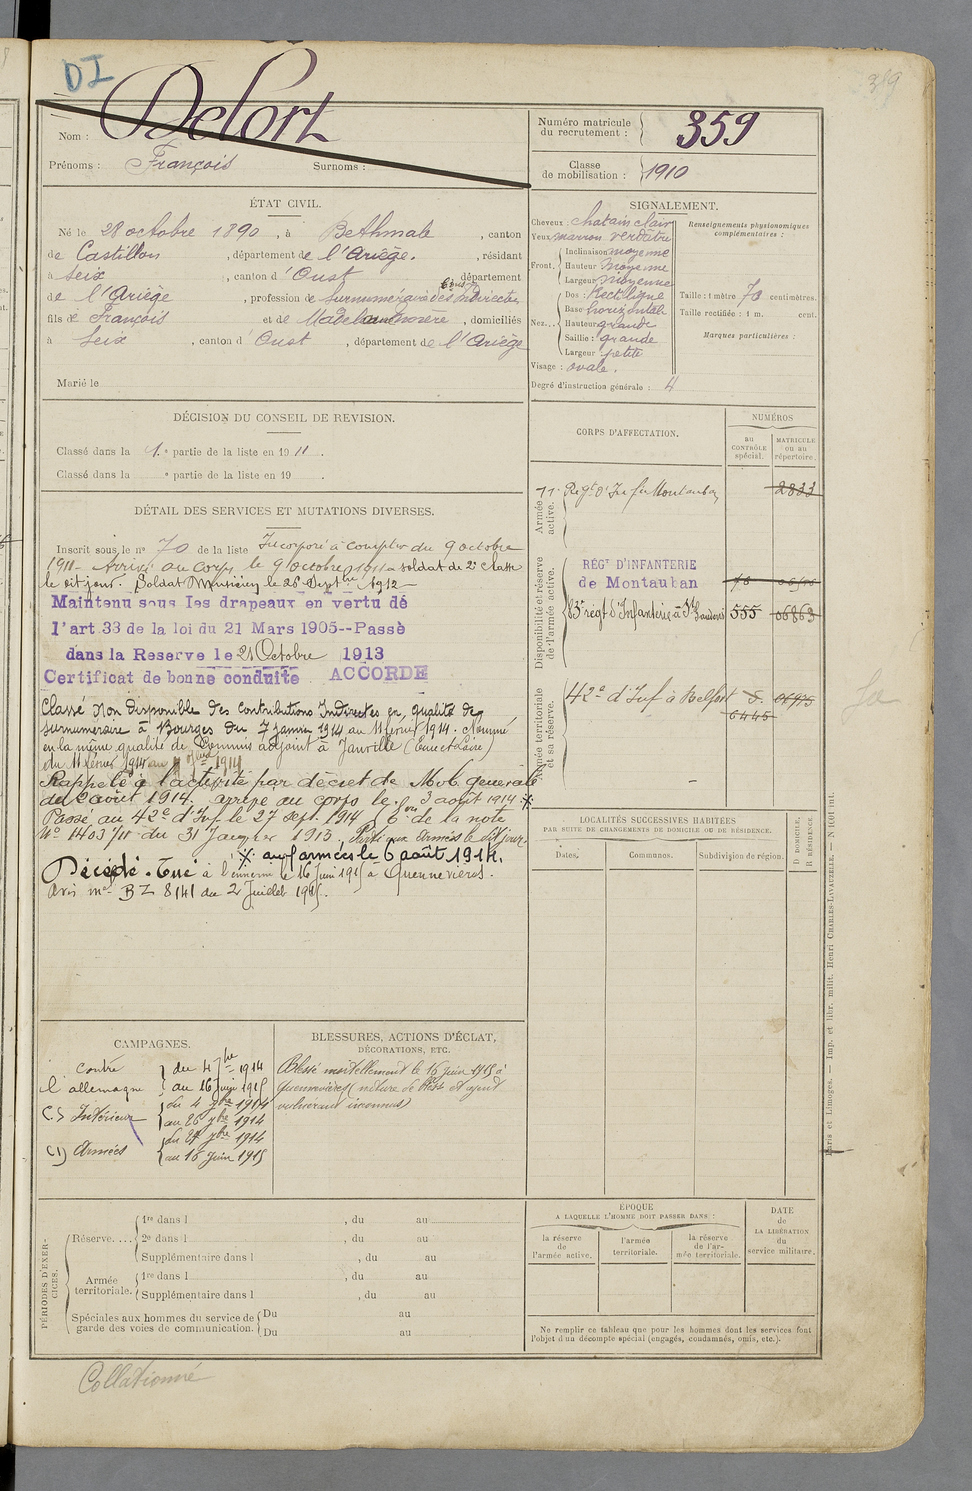 DI
359
Nom : Delort
Prénoms : François Surnoms :
Numéro matricule du recrutement : 359
Classe de mobilisation : 1910
ÉTAT CIVIL.
Né le 28 octobre 1890, à Bethmale, canton
de Castillon, département de l'Ariège., résidant
à Seix, canton d'Oust, département
de l'Ariège, profession de surnuméraire des indirectes
fils de François et de Madeleine, domiciliés
à Seix, canton d'Oust, département de l'Ariège
Marié le
SIGNALEMENT.
Cheveux : chatain clair
Yeux marron verdâtre
Front. Inclinaison moyenne
Hauteur Moyenne
Largeur moyenne
Nez... Dos : Rectiligne
Base horizontale
Hauteur grande
Saillie : grande
Largeur petite
Visage : ovale.
Degré d'instruction générale : 4
Renseignements physionomiques complémentaires :
Taille : 1 mètre 70 centimètres.
Taille rectifiée : 1 m. cent.
Marques particulières :
DÉCISION DU CONSEIL DE REVISION.
Classé dans la 1e partie de la liste en 1911.
Classé dans la e partie de la liste en 19 .
DÉTAIL DES SERVICES ET MUTATIONS DIVERSES.
Inscrit sous le n° 70 de la liste Incorporé à compter du 9 octobre
1911 - Arrivé au corps le 9 octobre 1911 soldat de 2e classe
le dit jour. Soldat Musicien le 26 Septbre 1912 -
Maintenu sous les drapeaux en vertu de
l'art 33 de la loi du 21 Mars 1905--Passé
dans la Reserve le 21 Octobre 1913
Certificat de bonne conduite ACCORDÉ
Classé Non Disponible des Contributions Indirectes en qualité de
surnuméraire à Bourges du 7 janvier 1914 au 11 février 1914. Nommé
en la même qualité de Commis adjoint à Janville (Eure et Loire)
du 11 février 1914 au 1914
Rappelé à l'activité par décret de Mob. générale
du 2 août 1914. arrivé au corps le 3 août 1914 ·/.
Passé au 42e d'Inf. le 27 sept. 1914 de la note
No 1403/11 du 31 Janvier 1915. Parti aux Armées le dit jour
·/. aux armées le 6 août 1914.
Décédé. Tué à l'ennemi le 16 Juin 1915 à Quennevières.
Avis mel BZ 8141 du 2 Juillet 1915.
CORPS D'AFFECTATION.
NUMÉROS
au CONTRÔLE spécial.
MATRICULE ou au répertoire.
Armée active.
11e Regt d'Infie Montauban 2833
Disponibilité et réserve de l'armée active.
RÉGt D'INFANTERIE
de Montauban
83e régt d'Infanterie à St Gaudens 555 06863
Armée territoriale et sa réserve.
42e d'Inf à Belfort 06975
6445
LOCALITÉS SUCCESSIVES HABITÉES
PAR SUITE DE CHANGEMENTS DE DOMICILE OU DE RÉSIDENCE.
Dates. Communes. Subdivision de région. D DOMICILE, R RÉSIDENCE.
CAMPAGNES.
contre l'allemagne
du 4 1914
au 16 juin 1915
CS Intérieur
du 4 1914
au 26 7bre 1914
CD Armées
du 27 7bre 1914
au 16 Juin 1915
BLESSURES, ACTIONS D'ÉCLAT,
DÉCORATIONS, ETC.
Blessé mortellement le 16 juin 1915 à
Quennevières (nature de bless. et agent
vulnérant inconnus)
PÉRIODES D'EXERCICES.
Réserve.... 1re dans l , du au
2e dans l , du au
Supplémentaire dans l , du au
Armée territoriale. 1re dans l , du au
Supplémentaire dans l , du au
Spéciales aux hommes du service de garde des voies de communication. Du au
Du au
ÉPOQUE
A LAQUELLE L'HOMME DOIT PASSER DANS :
la réserve de l'armée active.
l'armée territoriale.
la réserve de l'armée territoriale.
DATE de LA LIBÉRATION du service militaire.
Ne remplir ce tableau que pour les hommes dont les services font
l'objet d'un décompte spécial (engagés, condamnés, omis, etc.).
Paris et Limoges. — Imp. et libr. milit. Henri CHARLES-LAVAUZELLE. — N 1101 int.
Collationné